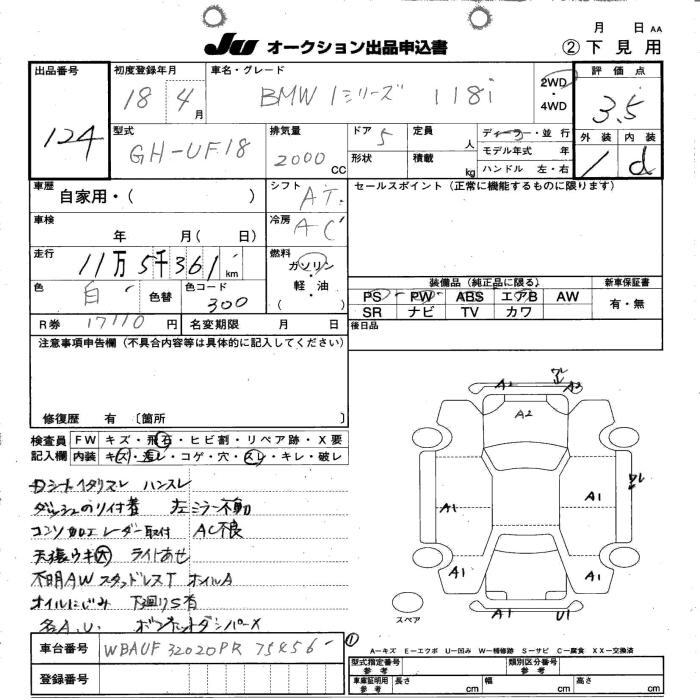 月 日 AA
JU オークション出品申込書
② 下見用
出品番号 初度登録年月 車名・グレード 2WD・4WD 評価点
124
18 4月 BMW 1シリーズ 118i 3.5
外装 内装
型式 排気量 ドア 5 定員 人 ディーラー・並行
GH-UF18 2000 CC 形状 積載 kg モデル年式 年
ハンドル 左・右
d
車歴 シフト AT セールスポイント (正常に機能するものに限ります)
自家用・( )
車検 冷房 AC
年 月( 日)
走行 燃料
11万5千361 km ガソリン・軽油 ( )
色 白 色替 色コード 300
装備品 (純正品に限る) 新車保証書
PS PW ABS エアB AW 有・無
SR ナビ TV カワ
R券 17110 円 名変期限 月 日 後日品
注意事項申告欄 (不具合内容等は具体的に記入してください)
修復歴 有 〔箇所 〕
検査員 FW キズ・飛石・ヒビ割・リペア跡・X要
記入欄 内装 キズ・汚レ・コゲ・穴・スレ・キレ・破レ
ハンスレ
左ミラー不動
レーダー取付 AC不良
天張ウキ大 ライトあせ
不明AW スタッドレスT オイルA
オイルにじみ 下廻りS有
各A.U. ボンネットダンパーX
A2 ワレ A2
A2
A1 A1 ワレ
A1 A1
A1 U1
スペア
車台番号 WBAUF32020PR75456
①
A-キズ E-エクボ U-凹み W-補修跡 S-サビ C-腐食 XX-交換済
登録番号
型式指定番号 参考 類別区分番号 参考
車庫証明用 参考 長さ cm 幅 cm 高さ cm